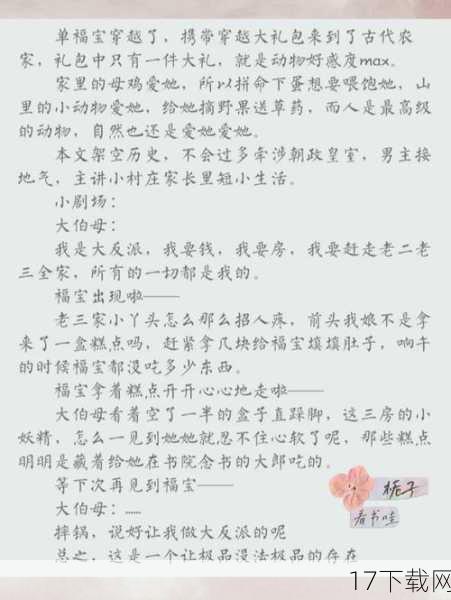 单福宝穿越了，携带穿越大礼包来到了古代农
家，礼包中只有一件大礼，就是动物好感度max。
家里的母鸡爱她，所以拼命下蛋想要喂饱她，山
里的小动物爱她，给她摘野果送草药，而人是最高级
的动物，自然也还是爱她爱她。
本文架空历史，不会过多牵涉朝政皇室，男主接
地气，主讲小村庄家长里短小生活。
小剧场：
大伯母：
我是大反派，我要钱，我要房，我要赶走老二老
三全家，所有的一切都是我的。
福宝出现啦——
老三家小丫头怎么那么招人疼，前头我娘不是拿
来了一盒糕点吗，赶紧拿几块给福宝填填肚子，晌午
的时候福宝都没吃多少东西。
福宝拿着糕点开开心心地走啦——
大伯母看着空了一半的盒子直跺脚，这三房的小
妖精，怎么一见到她她就忍不住心软了呢，那些糕点
明明是藏着给她在书院念书的大郎吃的。
等下次再见到福宝——
大伯母：……
摔锅，说好让我做大反派的呢
总之，这是一个让极品没法极品的存在
栀子
看书哇
17下载网